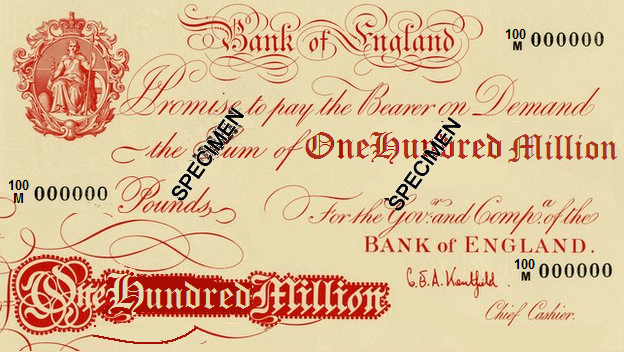 Bank of England
100 M 000000
I Promise to pay the Bearer on Demand
the Sum of One Hundred Million
Pounds
SPECIMEN
SPECIMEN
100 M 000000
For the Govr. and Compa. of the
BANK of ENGLAND.
100 M 000000
One Hundred Million
Chief Cashier.